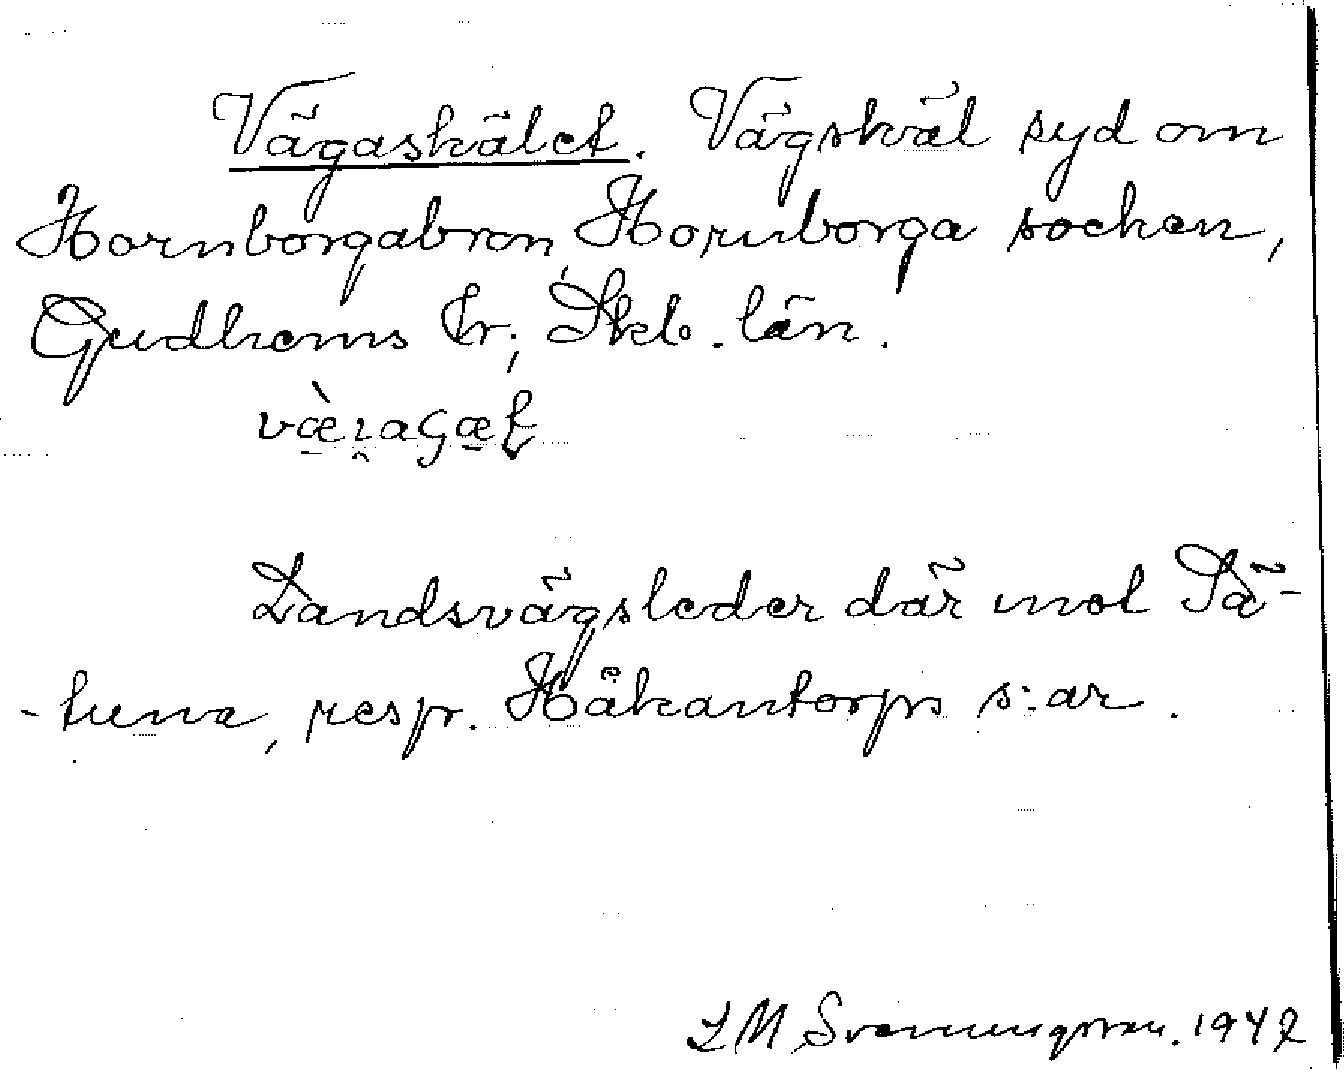 Vägaskälet. Vägskäl syd om
Hornborgabron, Hornborga socken,
Gudhems hr, Skb. län.
Landsvägsleder där mot Sä-
-tuna, resp. Håkantorps s:ar.
L M Svenungsson. 1942